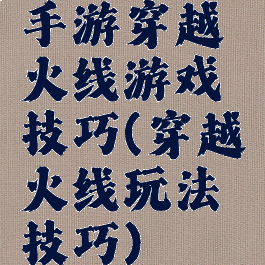 手游穿越
火线游戏
技巧(穿越
火线玩法
技巧)